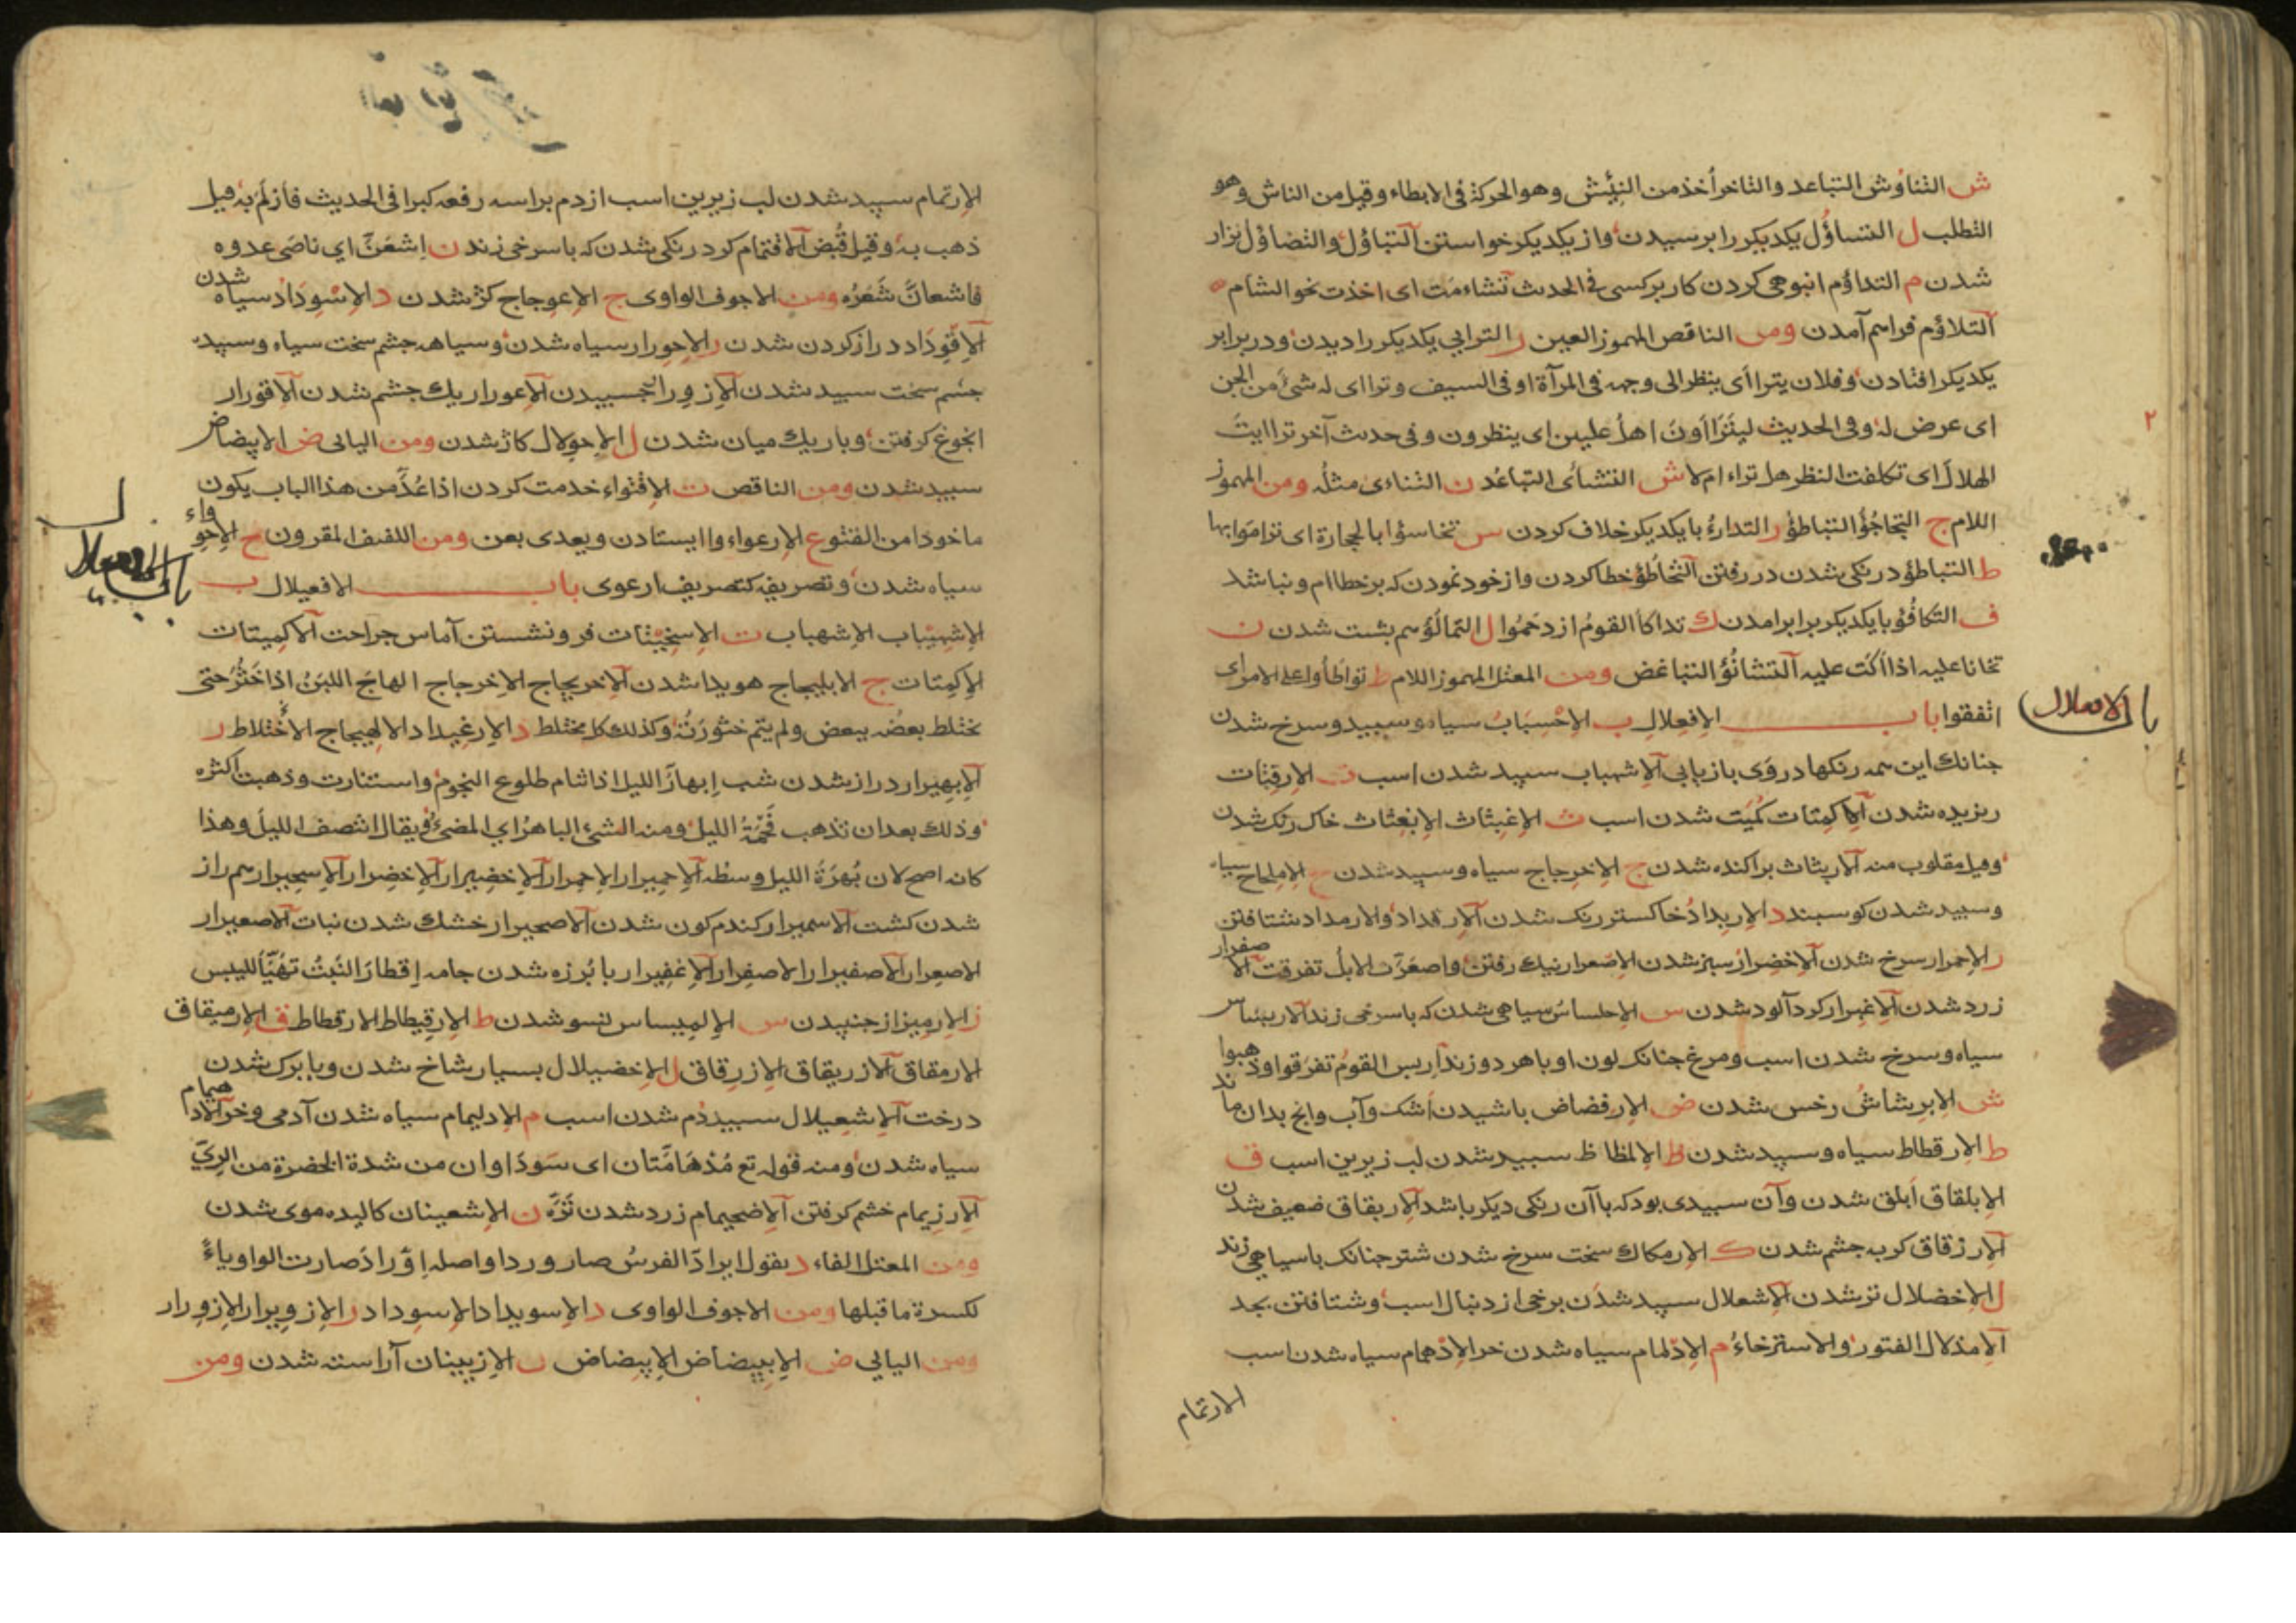 ش التناؤش التباعد والتاخر أخذ من النئيش وهو الحركة فى الابطاء وقيل من الناش وهو
التطلب ل التساؤل يكديكر را برسيدن واز يكديكر خواستن التباؤل والتضاؤل نزار
شدن م التداؤم انبوهى كردن كار بركسى فى الحدث تشاءمت اى اخذت نحو الشام
التلاؤم فراهم آمدن ومن الناقص المهموز العين ر الترايى يكديكر را ديدن ودر برابر
يكديكر افتادن وفلان يتراأى ينظر الى وجهه فى المرآة او فى السيف وتراأى له شئ من الجن
اى عرض له وفى الحديث ليتراأون اهل عليين اى ينظرون وفى حدث آخر ترا ايت
الهلال اى تكلفت النظر هل تراه ام لا ش التشائى التباعد ن التنائى مثله ومن المهموز
اللام ج التجاجؤ التباطؤ ر التدارؤ بايكديكر خلاف كردن س تخاسؤا بالحجارة اى تراموا بها
ط التباطؤ درنكى شدن در رفتن التخاطؤ خطا كردن واز خود نمودن كه بر خطاام ونباشد
ف التكافؤ بايكديكر برابر امدن ك تداكأ القوم ازدحموا ل التمالؤ هم بشت شدن ن
تخانا عليه اذا اكت عليه التشانؤ التباغض ومن المعتل المهموز اللام ط تواطأوا على الامر اى
اتفقوا باب الافعلال ب الاحسباب سياه وسبيد وسرخ شدن
باب الافعلال
جنانك اين همه رنكها در وى بازيابى الاشهباب سپيد شدن اسب ت الارفتات
ريزيده شدن الاكمتات كميت شدن اسب ث الاغبثاث الابغثاث خاك رنك شدن
وقيل مقلوب منه الاربثاث براكنده شدن ج الاخرجاج سياه وسپيد شدن ح الاملحاح سياه
وسبيد شدن كوسبند د الاربداد خاكستر رنك شدن الارقداد والارمداد شتافتن
ر الاحمرار سرخ شدن الاخضرار سبز شدن الاصعرار نيك رفتن واصعرت الابل تفرقت الاصفرار
زرد شدن الاغبرار كرد آلود شدن س الاحلساس سياهى شدن كه باسرخى زند الاربساس
سياه وسرخ شدن اسب ومرغ جنانك لون او باهر دو زند اربس القوم تفرقوا وذهبوا
ش الابرشاش رخس شدن ض الارفضاض باشيدن اشك وآب وانج بدان ماند
ط الارقطاط سياه وسپيد شدن ظ الالمظاظ سبيد شدن لب زيرين اسب ق
الابلقاق ابلق شدن وآن سبيدى بود كه باآن رنكى ديكر باشد الاربقاق ضعيف شدن
الازرقاق كربه جشم شدن ك الارمكاك سخت سرخ شدن شتر جنانك باسياهى زند
ل الاخضلال تر شدن الاشعلال سپيد شدن برخى از دنبال اسب وشتافتن بجد
الامذلال الفتور والاسترخاء م الادلمام سياه شدن خر الادهمام سياه شدن اسب
الارتمام
الارتمام سپيد شدن لب زيرين اسب ازدم براسه رفعه كبرا فى الحديث فازلم به قيل
ذهب به وقيل قبض الاقتمام كرد رنكى شدن كه باسرخى زند ن اشعن اى ناصى عدوه
فاشعان شعره ومن الاجوف الواوى ج الاعوجاج كژ شدن د الاسوداد سياه شدن
الاقوداد دراز كردن شدن ر الاحورار سياه شدن وسياهه جشم سخت سياه وسپيده
جشم سخت سبيد شدن الازورار خسبيدن الاعورار يك جشم شدن الاقورار
انجوغ كرفتن وباريك ميان شدن ل الاحولال كاژ شدن ومن اليائى ض الابيضاض
سبيد شدن ومن الناقص ت الاقتواء خدمت كردن اذا عد من هذا الباب يكون
ماخوذا من القتو ع الارعواء وا ايستادن ويعدى بعن ومن اللفيف المقرون ح الاحوواء
سياه شدن وتصريفه كتصريف ارعوى باب الافعيلال ب
باب الافعيلال
الاشهيباب الاشهباب ت الاسخيتات فرو نشستن آماس جراحت الاكميتات
الاكمتات ج الابليجاج هويدا شدن الاخريجاج الاخرجاج الهاج اللبن اذا خثر حتى
يختلط بعضه ببعض ولم يتم خثورته وكذلك كل مختلط د الارغيداد الالهيجاج الاختلاط ر
الابهيرار دراز شدن شب ابهار الليل اذا تنام طلوع النجوم واستنارت وذهبت اكثره
وذلك بعد ان تذهب فحمة الليل ومنه الشئ الباهر اى المضئ ويقال انتصف الليل وهذا
كانه اصح لان بهرة الليل وسطه الاحميرار الاحمرار الاخضيرار الاخضرار الاسحيرار هم راز
شدن كشت الاسميرار كندم كون شدن الاصحيرار خشك شدن نبات الاصعيرار
الاصعرار الاصفيرار الاصفرار الاغفيرار با برزه شدن جامه اقطار النبت تهيأ لليبس
ز الارميزاز جنبيدن س الالميساس نسو شدن ط الارقيطاط الارقطاط ق الارميقاق
الارمقاق الازريقاق الازرقاق ل الاخضيلال بسيار شاخ شدن وبابرك شدن
درخت الاشعيلال سبيد دم شدن اسب م الادليمام سياه شدن آدمى وخر الادهيمام
سياه شدن ومنه قوله تع مدهامتان اى سوداوان من شدة الخضرة من الرى
الارزيمام خشم كرفتن الاضحيمام زرد شدن تره ن الاشعينان كاليده موى شدن
ومن المعتل الفاء د يقول ايراد الفرس صار وردا واصله اوراد صارت الواو ياء
لكسرة ما قبلها ومن الاجوف الواوى د الاسويداد الاسوداد ر الازويرار الازورار
ومن اليائى ض الابييضاض الابيضاض ن الازيينان آراسته شدن ومن